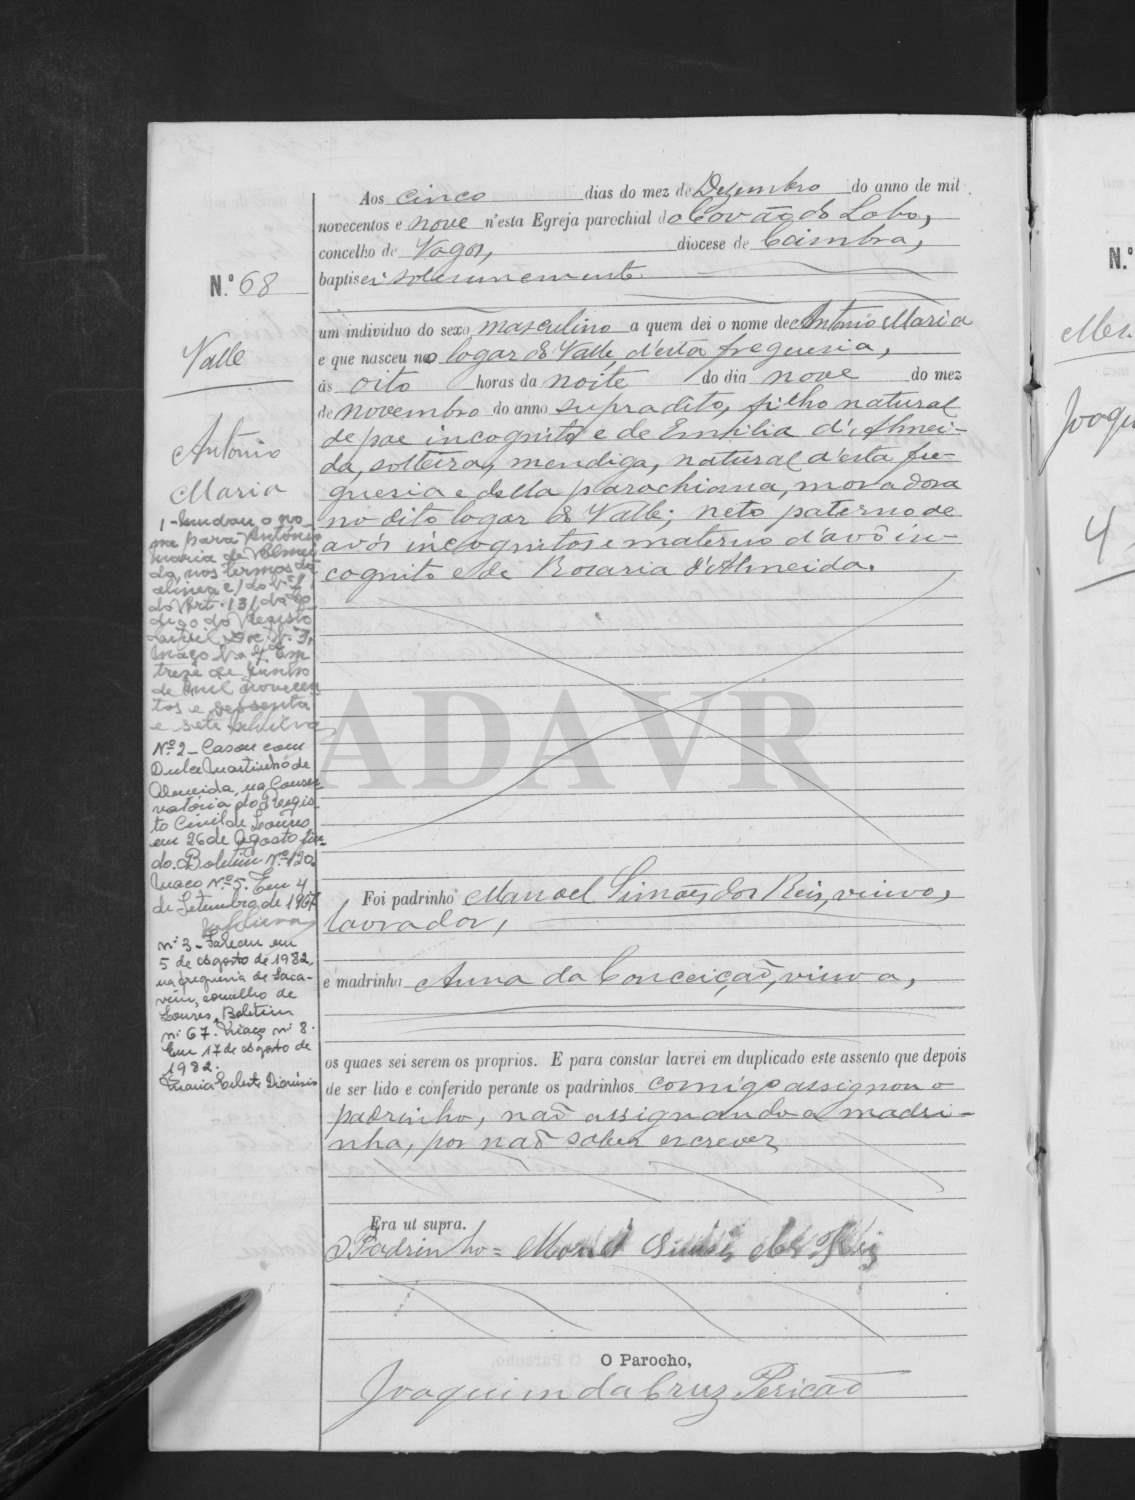 Aos cinco dias do mez de Dezembro do anno de mil
novecentos e nove n'esta Egreja parochial do Covão do Lobo,
concelho de Vagos, diocese de Coimbra,
baptisei solemnemente
N.º 68
um individuo do sexo masculino a quem dei o nome de Antonio Maria
Valle
e que nasceu no logar de Valle, d'esta freguesia,
ás oito horas da noite do dia nove do mez
de novembro do anno supradito, filho natural
Antonio
Maria
de pae incognito e de Emilia d'Almei-
da, solteira, mendiga, natural d'esta fre-
guesia e della parochiana, moradora
no dito logar de Valle; neto paterno de
avós incognitos e materno d'avô in-
cognito e de Rosaria d'Almeida.
1 - Mudou o no-
me para António
Maria de Almei-
da, nos termos da
alinea e) do n.º 1
do Art. 131 do Co
digo do Registo
Civil Doc. N.º 3,
Maço N.º 4 Em
treze de Junho
de mil novecen
tos e sessenta
e sete
Nº 2 - Casou com
Dulce Martinho de
Almeida, na Conser
vatória do Regis-
to Civil de Loures
em 26 de Agosto fin-
do. Boletim Nº 120
Maço Nº 5. Em 4
de Setembro de 1967
nº 3 - Faleceu em
5 de Agosto de 1982,
na freguesia de Saca-
vém, concelho de
Loures, Boletim
nº 67. Maço nº 8.
Em 17 de Agosto de
1982.
Maria Celeste Dionísio
ADAVR
Foi padrinho Manoel Simões dos Reis, viuvo,
lavrador,
e madrinha Anna da Conceição, viuva,
os quaes sei serem os proprios. E para constar lavrei em duplicado este assento que depois
de ser lido e conferido perante os padrinhos comigo assignou o
padrinho, não assignando a madri-
nha, por não saber escrever
Era ut supra.
O Padrinho = Manoel Simões dos Reis
O Parocho,
Joaquim da Cruz Pericão
N.º
Joaqu
4